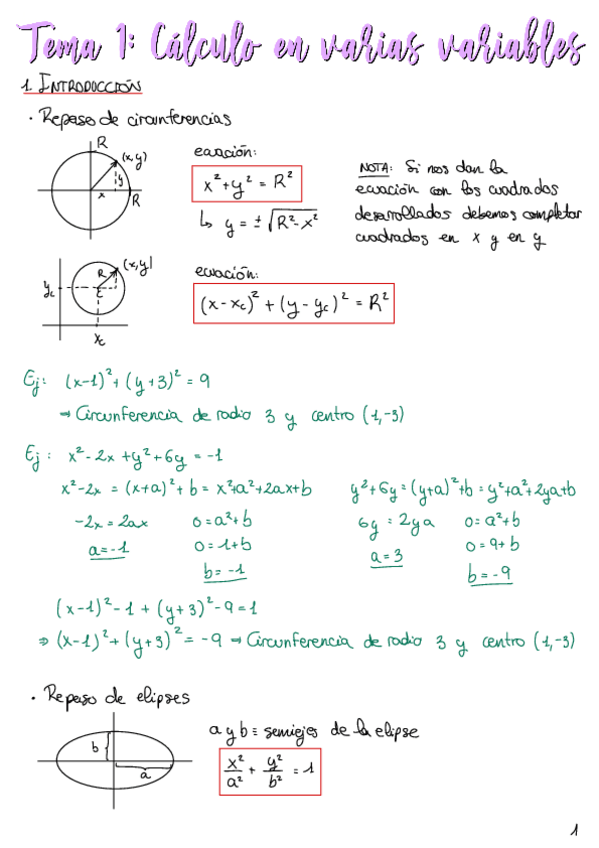 Tema 1: Cálculo en varias variables
1. INTRODUCCIÓN
· Repaso de circunferencias
R
(x,y)
y
x
R
ecuación:
x² + y² = R²
↳ y = ± √R² - x²
NOTA: Si nos dan la
ecuación con los cuadrados
desarrollados debemos completar
cuadrados en x y en y
R
(x,y)
yc
c
xc
ecuación:
(x - xc)² + (y - yc)² = R²
Ej: (x-1)² + (y+3)² = 9
→ Circunferencia de radio 3 y centro (1,-3)
Ej: x² - 2x + y² + 6y = -1
x² - 2x = (x+a)² + b = x²+a²+2ax+b
y²+6y = (y+a)²+b = y²+a²+2ya+b
-2x = 2ax
0 = a²+b
6y = 2ya
0 = a²+b
a = -1
0 = 1+b
a = 3
0 = 9+b
b = -1
b = -9
(x-1)² - 1 + (y+3)² - 9 = 1
⇒ (x-1)² + (y+3)² = -9 → Circunferencia de radio 3 y centro (1,-3)
· Repaso de elipses
b
a
a y b ≡ semiejes de la elipse
x²/a² + y²/b² = 1
1